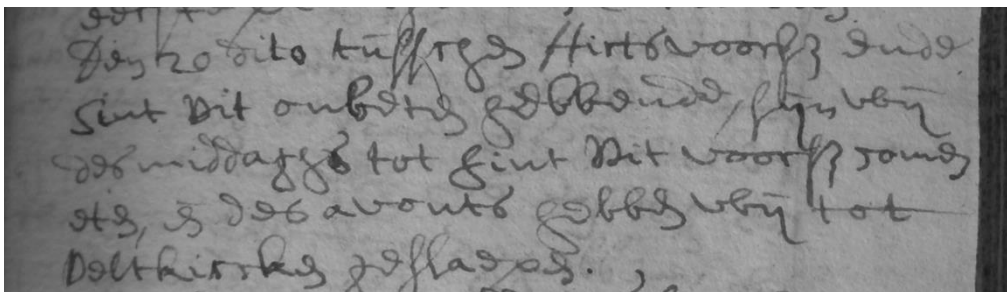 Den 20 dito tusschen Hirts voorsz ende
Sint Vit onbeten hebbende, sijn wij
des middaghs tot Sint Vit voorsz comen
eten, en des avonts hebben wij tot
Veltkircken geslapen.